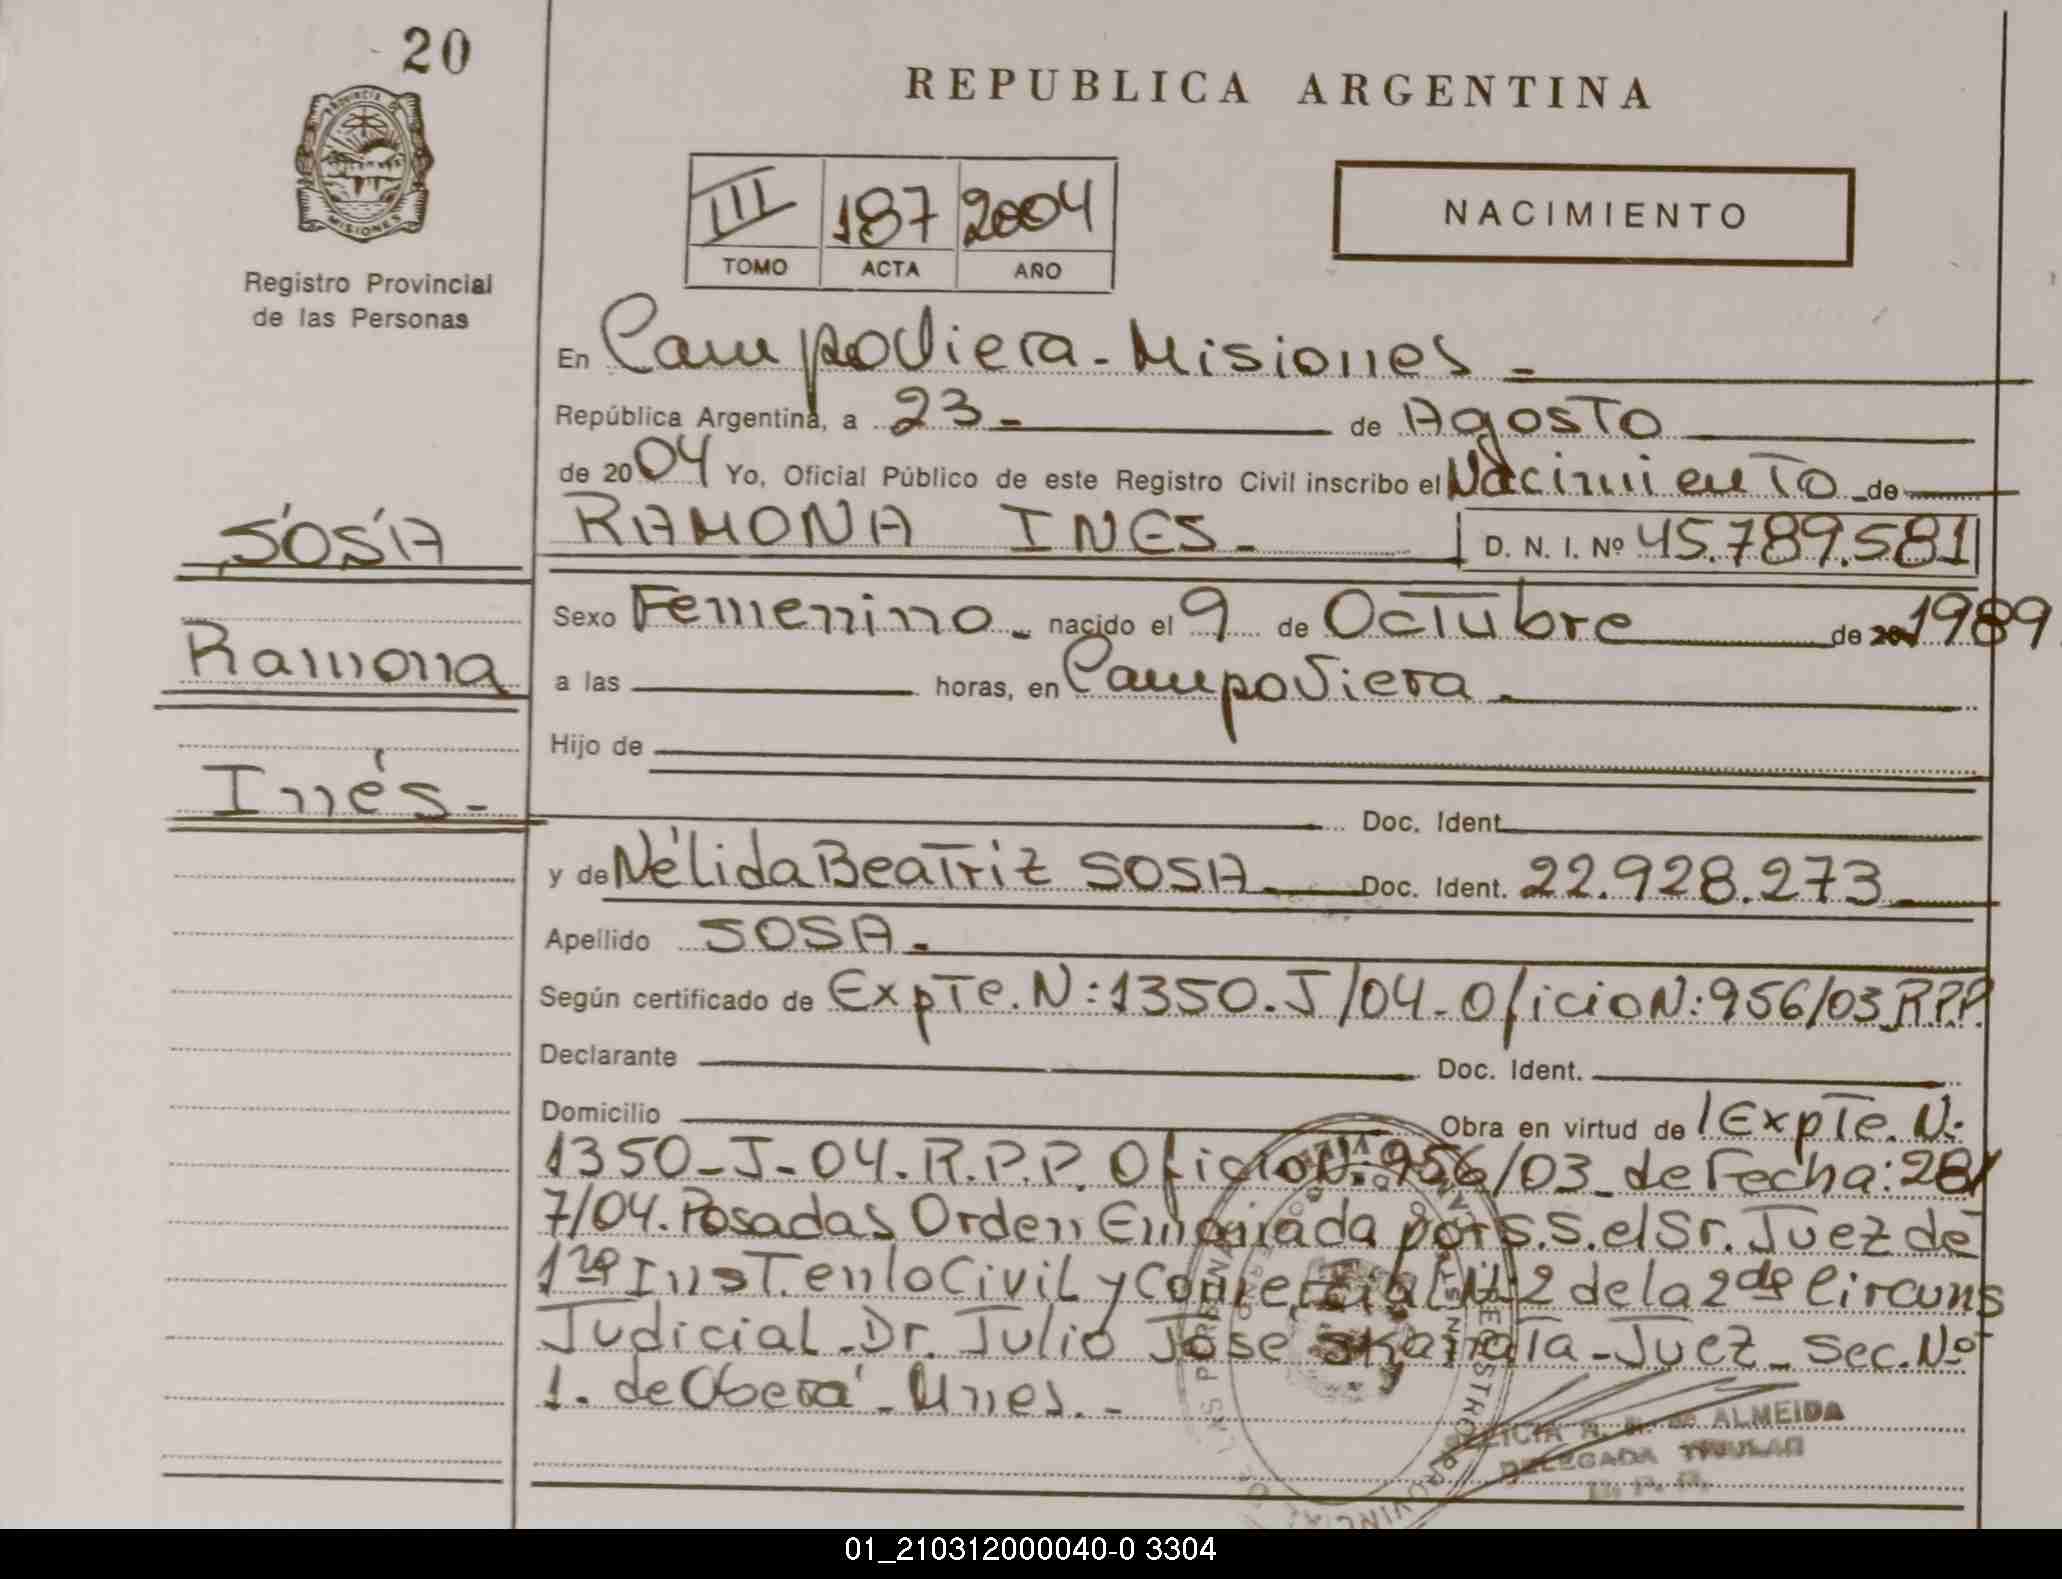 20
REPUBLICA ARGENTINA
PROVINCIA DE
MISIONES
Registro Provincial
de las Personas
III 187 2004
TOMO ACTA AÑO
NACIMIENTO
En Campo Viera - Misiones -
República Argentina, a 23 - de Agosto
de 2004 Yo, Oficial Público de este Registro Civil inscribo el Nacimiento de
SOSA
RAMONA INES - D. N. I. Nº 45.789.581
Sexo Femenino - nacido el 9 de Octubre de 20 1989
Ramona
a las horas, en Campo Viera -
Hijo de
Inés -
Doc. Ident.
y de Nélida Beatriz SOSA - Doc. Ident. 22.928.273
Apellido SOSA -
Según certificado de Expte. N: 1350. J/04 - Oficio N: 956/03 R.P.P.
Declarante Doc. Ident.
Domicilio Obra en virtud de Expte. N:
1350 - J - 04. R.P.P. Oficio N: 956/03 - de Fecha: 28/
7/04. Posadas Orden Emanada por S.S. el Sr. Juez de
1ra Inst. en lo Civil y Comercial N: 2 de la 2da Circuns
Judicial - Dr. Julio José - Juez - Sec. Nº
1. de Oberá - Mnes. -
DE ALMEIDA
DELEGADA TITULAR
01_210312000040-0 3304